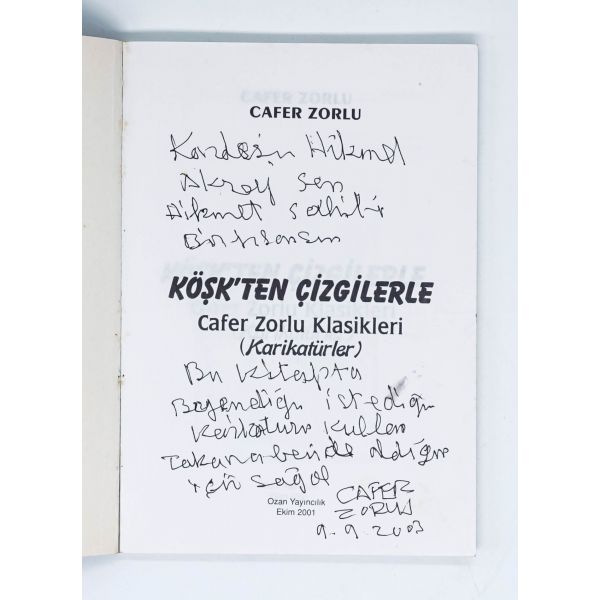 CAFER ZORLU
Kardeşim Hikmet
Akray sen
Hikmet sahibi
Bir insansın
KÖŞK'TEN ÇİZGİLERLE
Cafer Zorlu Klasikleri
(Karikatürler)
Bu kitapta
Beğendiğin istediğin
Karikatürü kullan
için sağol
Ozan Yayıncılık
Ekim 2001
CAFER
ZORLU
9.9.2003